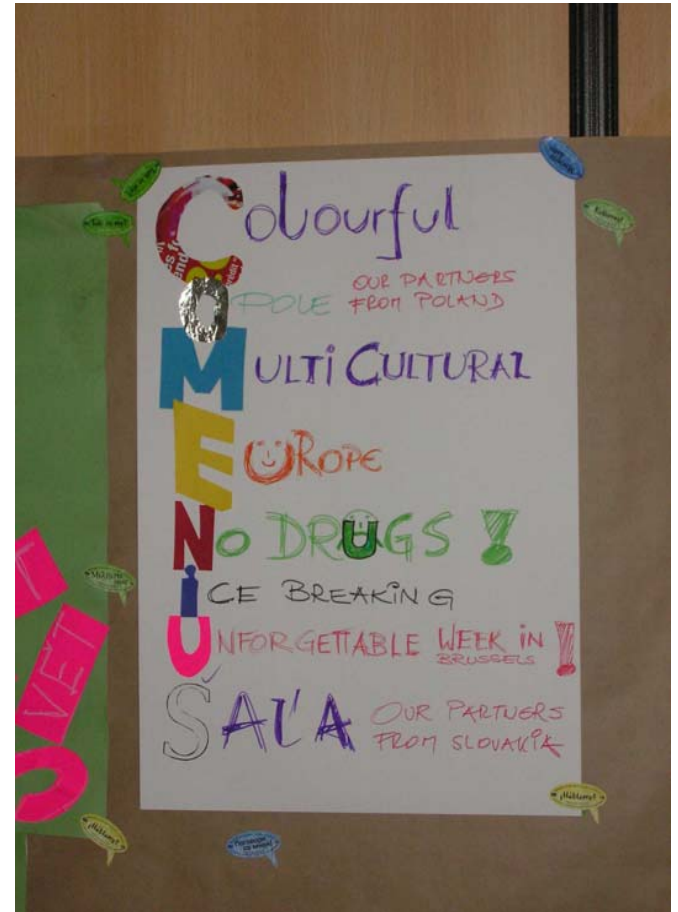 Colourful
OPOLE OUR PARTNERS
FROM POLAND
MULTI CULTURAL
EUROPE
NO DRUGS !
iCE BREAKING
UNFORGETTABLE WEEK iN !
BRUSSELS
ŠAĽA OUR PARTNERS
FROM SLOVAKIA
VET